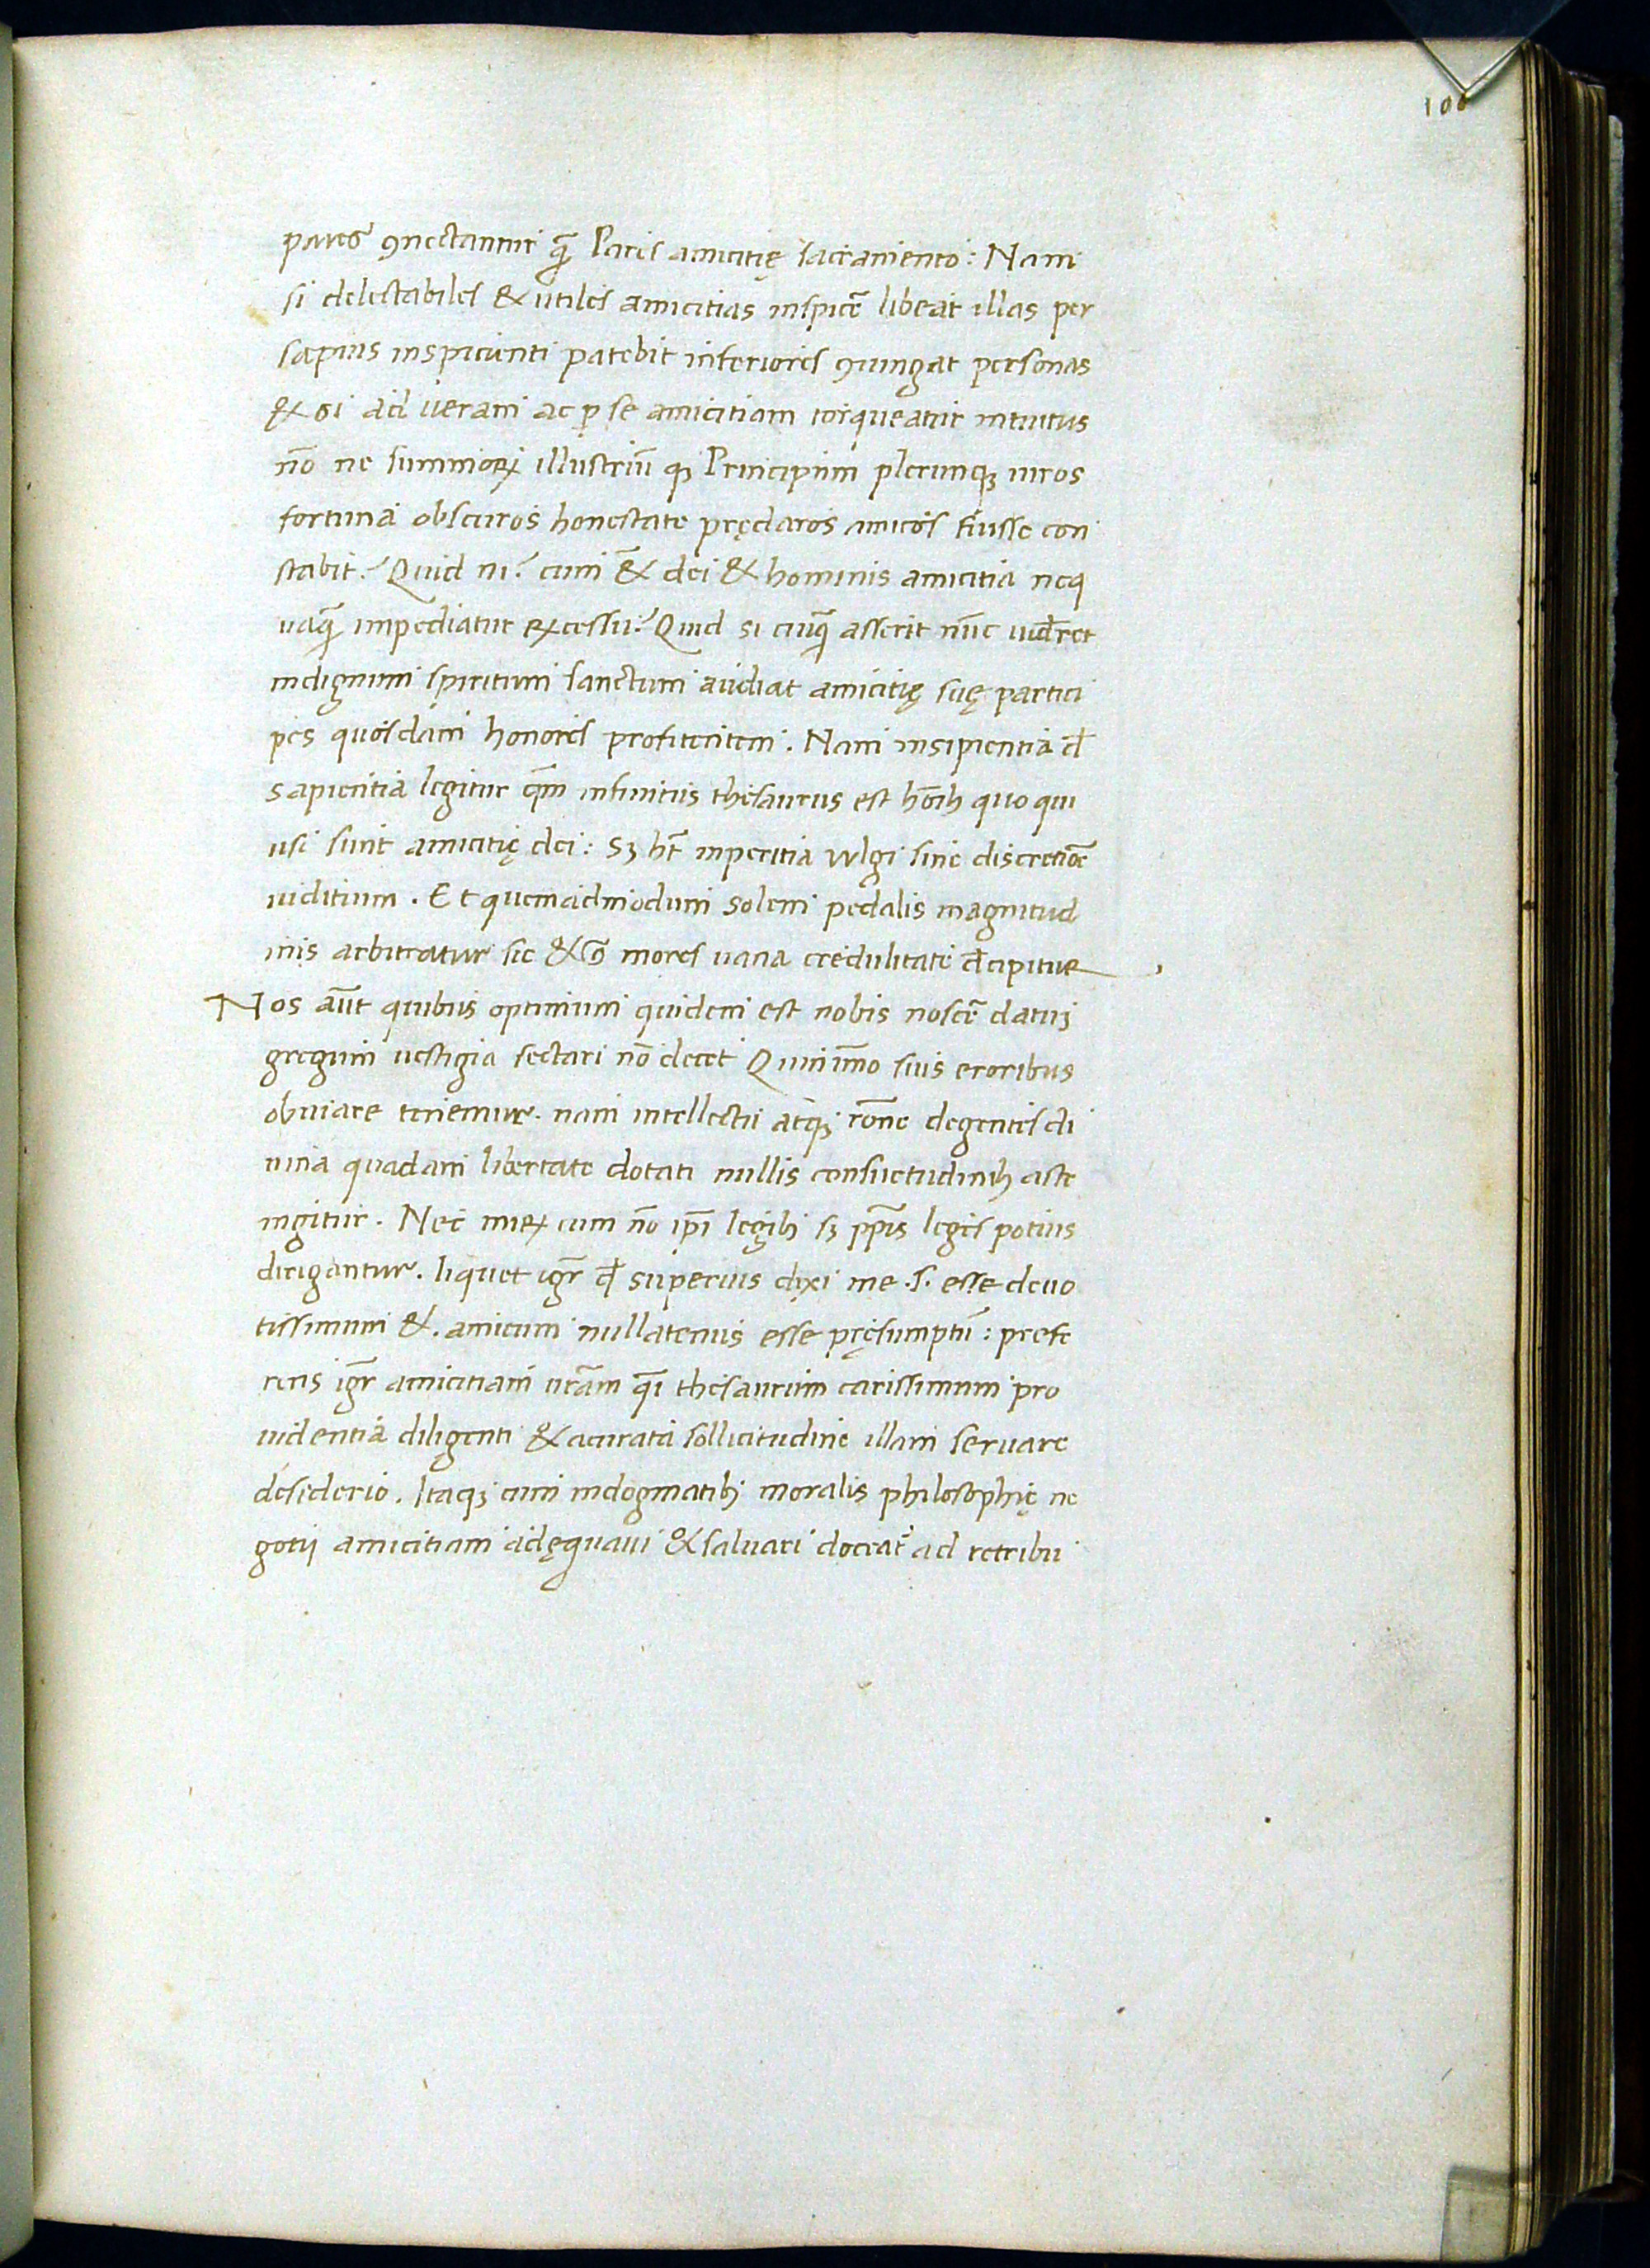 100
pares ꝯnectantur q̃ Paris amicitię sacramento: Nam
si delectabiles & utiles amicitias inspicẽ libeat illas per
sæpius inspicienti patebit inferiores ꝯiungat personas
& si ad ueram ac ꝑ se amicitiam torqueatur intuitus
nõ ne summoꝝ illustriũ qꝫ Principum plerunqꝫ uiros
fortuna obscuros honestate pręclaros amicos fuisse con
stabit? Quid ni? cum & dei & hominis amicitia neq
uaq̃ impediatur excessu? Quid si cuiq̃ asserit nũc uid̃ret
indignum spiritum sanctum audiat amicitię suę partici
pes quosdam honores profitentem. Nam insipientia ꝗ
sapientia legitur qm̃ infinitus thesaurus est hõıb quo qui
usi sunt amicitię dei: Sꝫ ht̃ inperitia vulgi sine discretiõe
iuditium. Et quemadmodum solem pedalis magnitud
inis arbitratur sic & mores uana credulitate decipitur
Nos aũt quibus optimum quidem est nobis noscẽ datuꝫ
gregum uestigia sectari nõ decet Quinim̃o suis eroribus
obuiare tenemur. nam intellectu atqꝫ rõne degentes di
uina quadam libertate dotati nullis consuetudinib aste
ingitur. Nec mirx cum nõ ip̃i legibꝫ sꝫ pp̃is leges potius
dirigantur. liquet igr̃ ꝗ superius dixi me .s. esse deuo
tissimum &. amicum nullatenus esse pręsumptũ: prefe
rens igr̃ amicitiam ur̃am q̃i thesaurum carissimum pro
uidentia diligenti & acurata sollicitudine illam seruare
desiderio. Itaqꝫ cum indogmatibꝫ moralis philosophię ne
gotij amicitiam adęquaui & saluari doceat̃ ad retribu